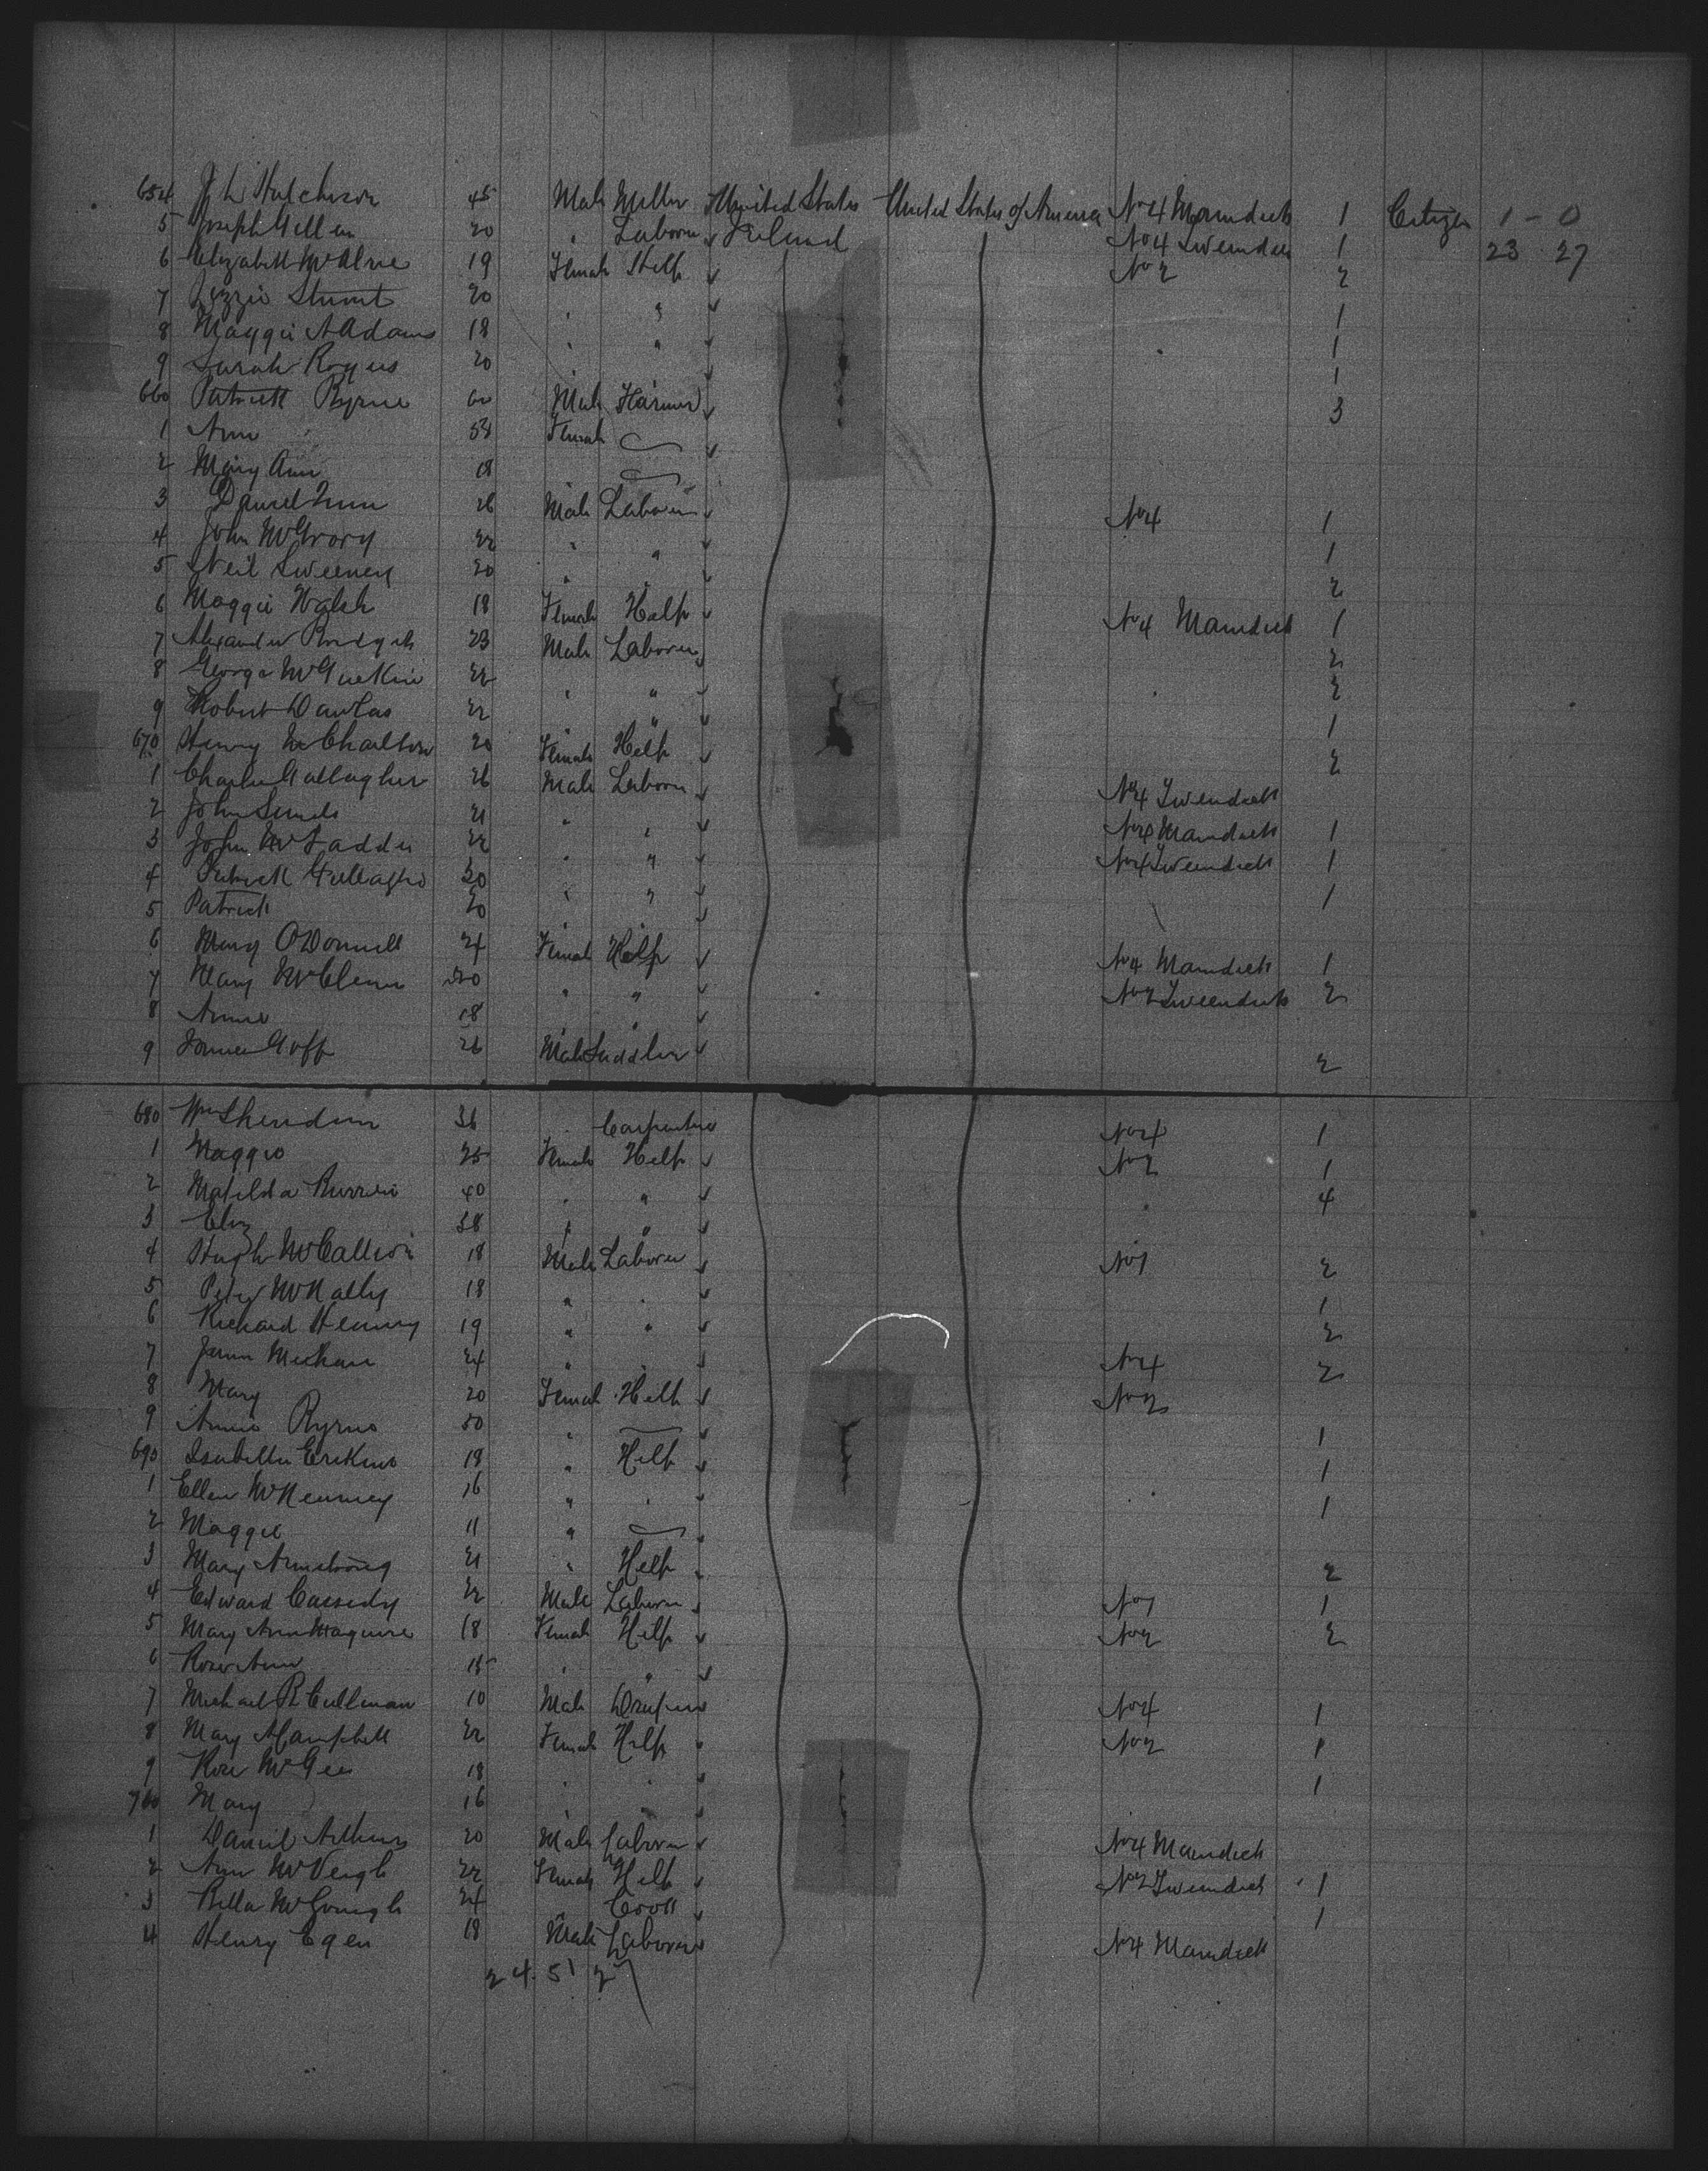 654 J L Hutchison 45 Male Miller United States United States of America No 4 Maindeck 1 Citizen 1 - 0
5 Joseph Gillen 20 " Laborer Ireland No 4 Tweendeck 1 23 27
6 Elizabeth McAlree 19 Female Help No 2 2
7 Lizzie Stewart 20 " " 1
8 Maggie A Adams 18 " " 1
9 Sarah Rogers 20 1
660 Patrick Byrne 60 Male Farmer 3
1 Ann 53 Female
2 Mary Ann 18
3 Daniel 26 Male Laborer No 4 1
4 John McGrory 22 " " 1
5 Neil Sweeney 20 " " 2
6 Maggie Walsh 18 Female Help No 4 Maindeck 1
7 Alexander 23 Male Laborer 2
8 George McGuckin 22 " " 2
9 Robert 22 " " 1
670 Henry McCharlton 20 Female Help 2
1 Charles Gallagher 26 Male Laborer No 4 Tweendeck
2 John 21 " " No 4 Maindeck 1
3 John McFadden 22 " " No 4 Tweendeck 1
4 Patrick Gallagher 30 " " 1
5 Patrick 20
6 Mary O'Donnell 24 Female Help No 4 Maindeck 1
7 Mary McClean 20 " " No 2 Tweendeck 2
8 Annie 18 "
9 James Goff 26 Male Saddler 2
680 Wm Sheridan 36 " Carpenter No 4 1
1 Maggie 25 Female Help No 2 1
2 Matilda 40 " " 4
3 Eliz 38 " "
4 Hugh McCallion 18 Male Laborer No 1 2
5 Peter McNally 18 " " 1
6 Richard Henning 19 " " 2
7 James Meehan 24 " " No 4 2
8 Mary 20 Female Help No 2
9 Annie Byrne 50 " 1
690 Isabella 19 " Help 1
1 Ellen McNenney 16 " " 1
2 Maggie 11 "
3 Mary Armstrong 21 " Help 2
4 Edward Cassedy 22 Male Laborer No 1 1
5 Mary Ann Maguire 18 Female Help No 2 2
6 Rose Ann 15 " "
7 Michael B Cullman 10 Male Draper No 4 1
8 Mary A Campbell 22 Female Help No 2 1
9 Rose McGee 18 " " 1
700 Mary 16 " "
1 Daniel Arthurs 20 Male Laborer No 4 Maindeck
2 Ann McVeigh 22 Female Help No 2 Tweendeck 1
3 Bella McGonigle 24 " Cook 1
4 Henry Egen 18 Male Laborer No 4 Maindeck
24 51 2